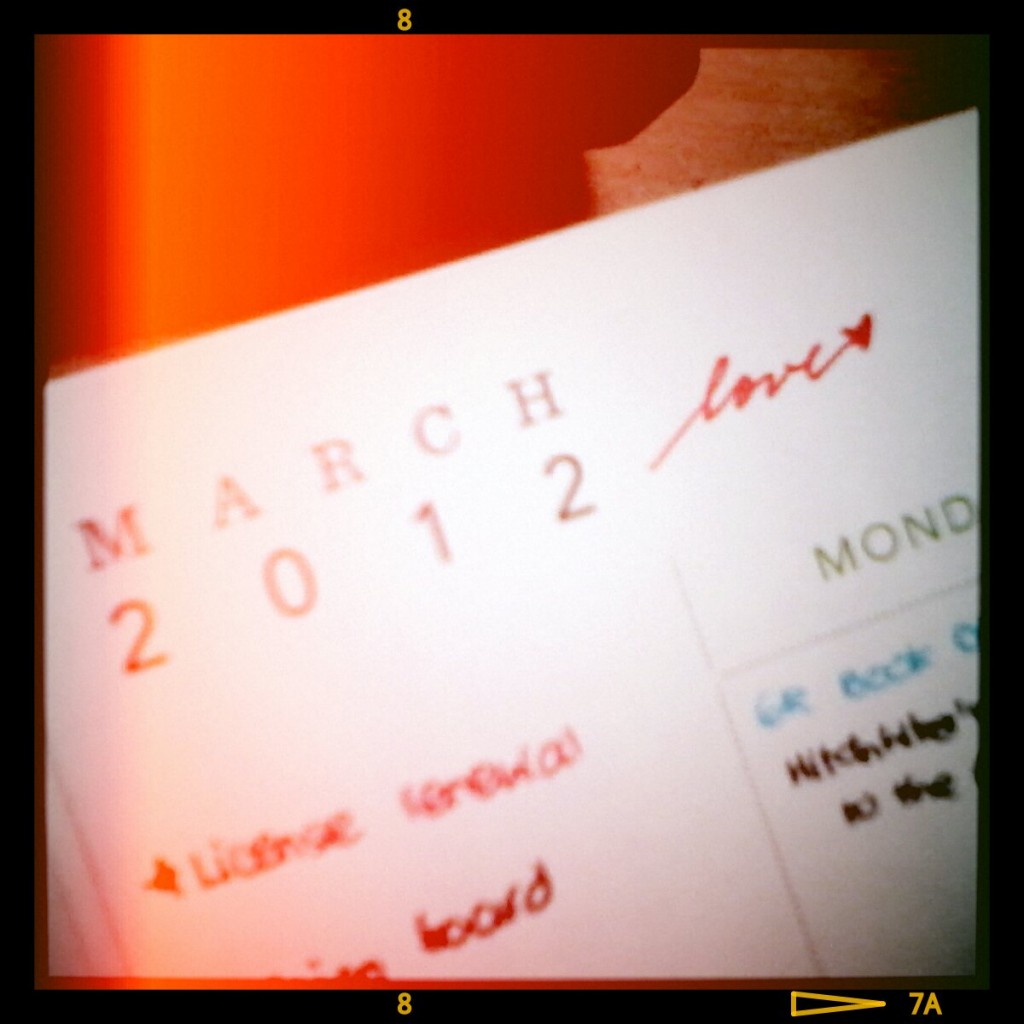 8
MARCH
2012
love
MOND
GR BOOK
Hitchhiker's
to the
License renewal
board
8
7A